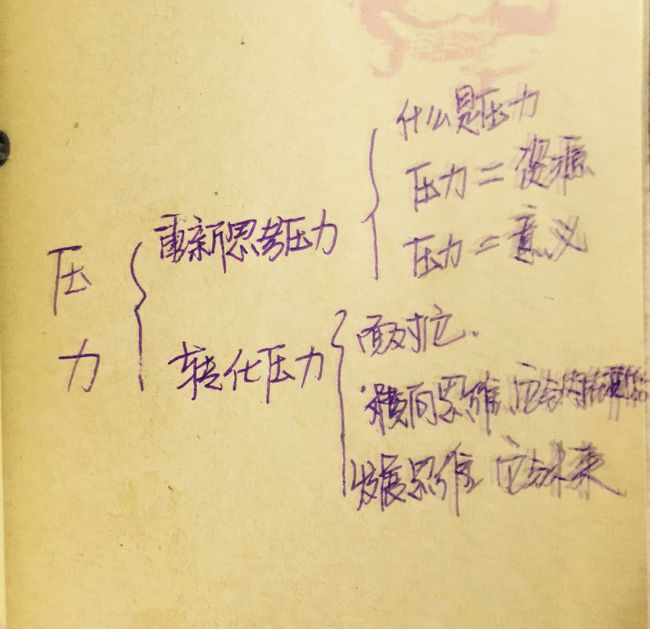 压力
重新思考压力
什么是压力
压力=资源
压力=意义
转化压力
面对它.
横向思维 它与
发展思维 它与未来